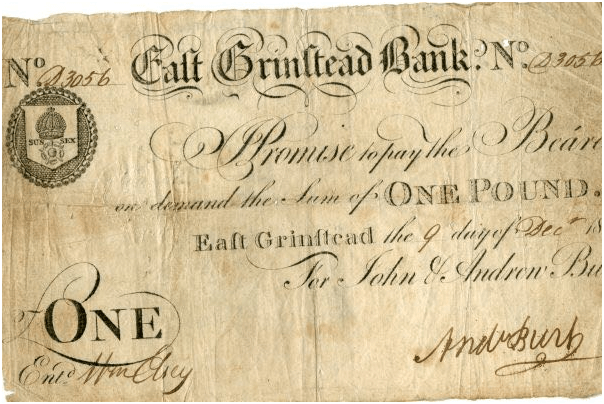 No D3056 East Grinstead Bank. No. D3056
SUS SEX
I Promise to pay the Beare
on demand the Sum of ONE POUND.
East Grinstead the 9 day of Decr 18
For John & Andrew Bu
£ONE
Andw Burt
Entd Wm Elsey